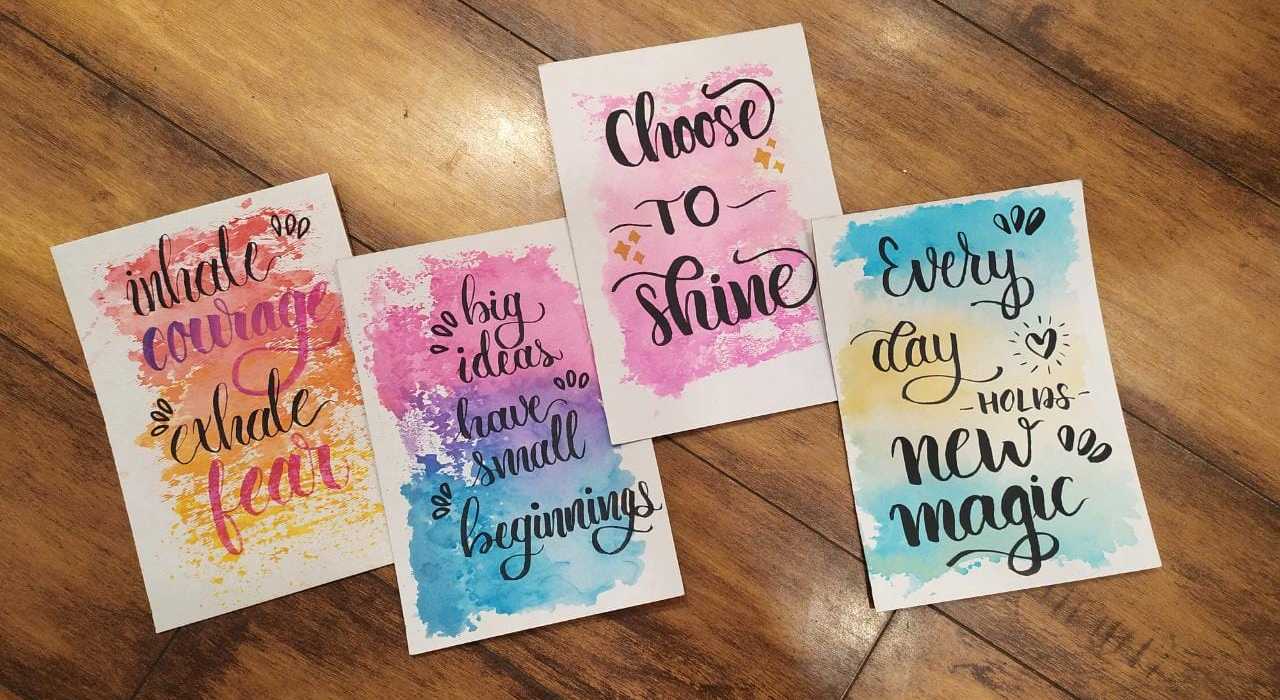 inhale
courage
exhale
fear
big
ideas
have
small
beginnings
Choose
TO
shine
Every
day
-HOLDS-
new
magic